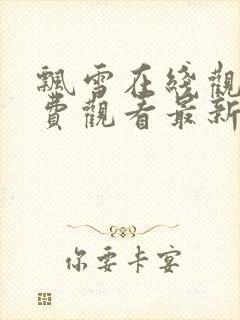 飄雪在綫觀
費觀看最新
你要卡宴